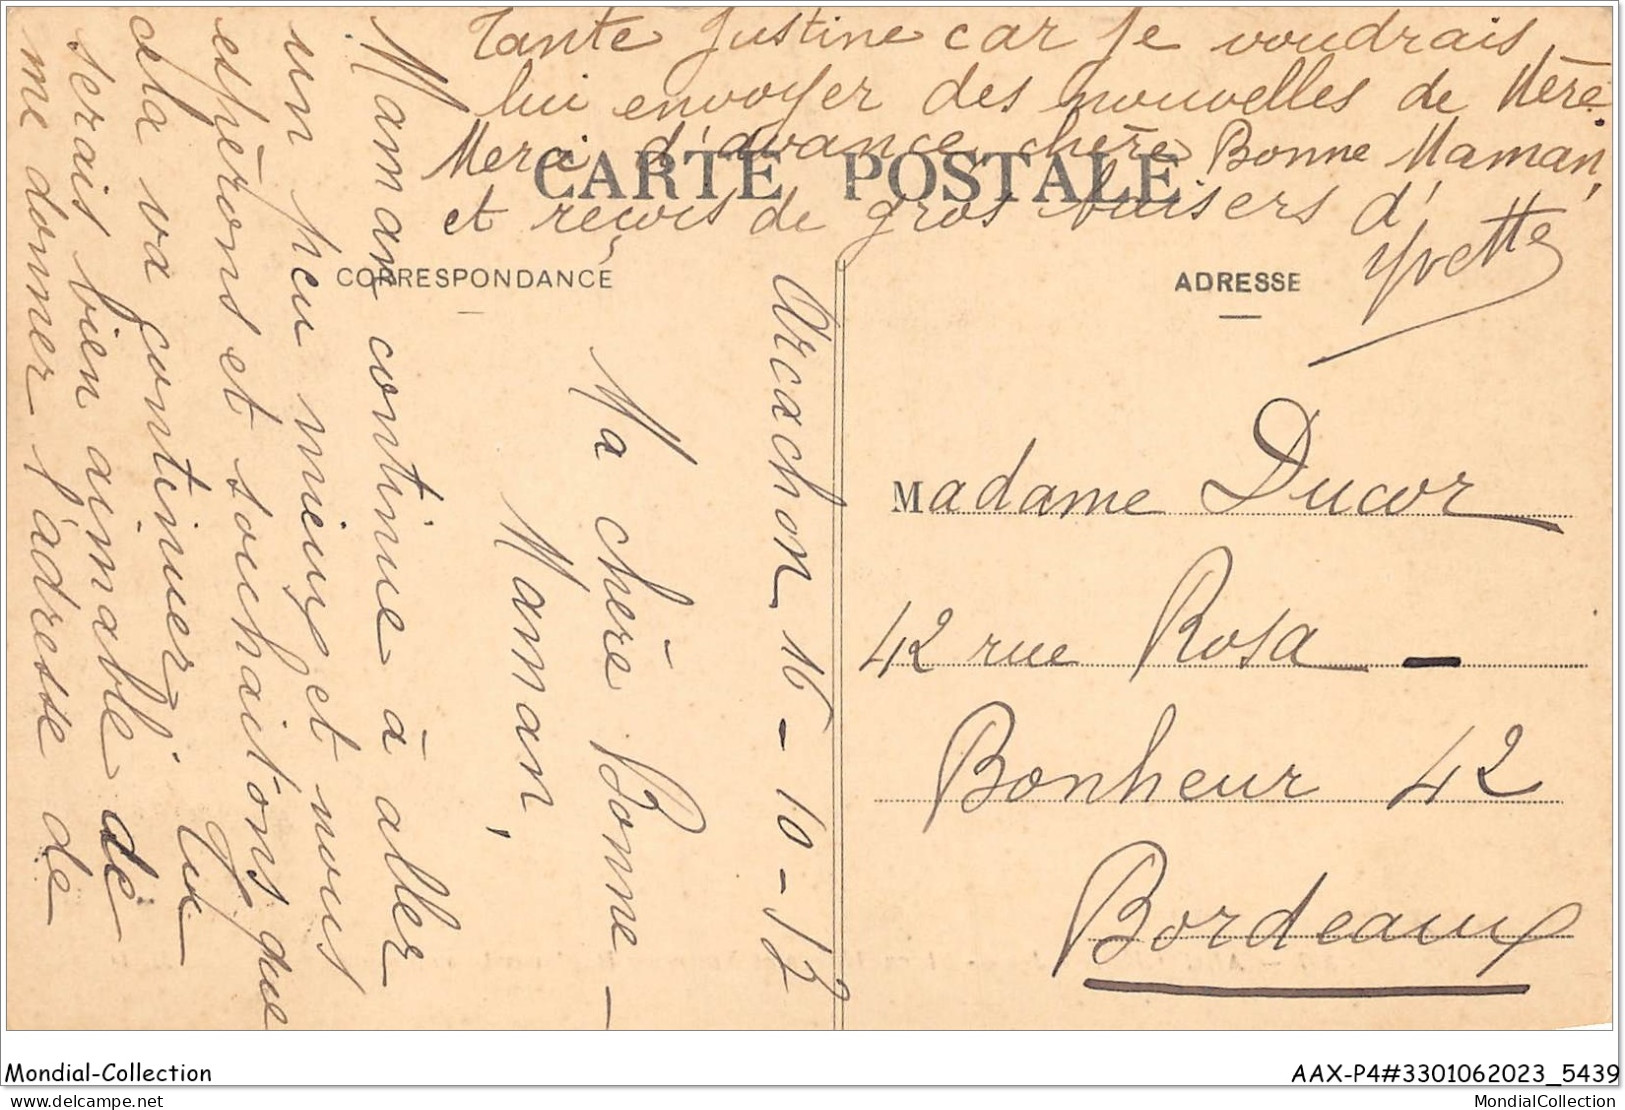 CARTE POSTALE
CORRESPONDANCE
ADRESSE
Arcachon 16-10-17
Ma chère Bonne-
Maman,
Maman continue à aller
un peu mieux et nous
espèrons et souhaitons que
cela va continuer. Tu
serais bien aimable de
me donner l'adresse de
Tante Justine car je voudrais
lui envoyer des nouvelles de Mère.
Merci d'avance chère Bonne Maman,
et reçois de gros baisers d'
Yvette
Madame Ducor
42 rue Rosa -
Bonheur 42
Bordeaux
Mondial-Collection
AAX-P4#3301062023_5439
delcampe.net
MondialCollection